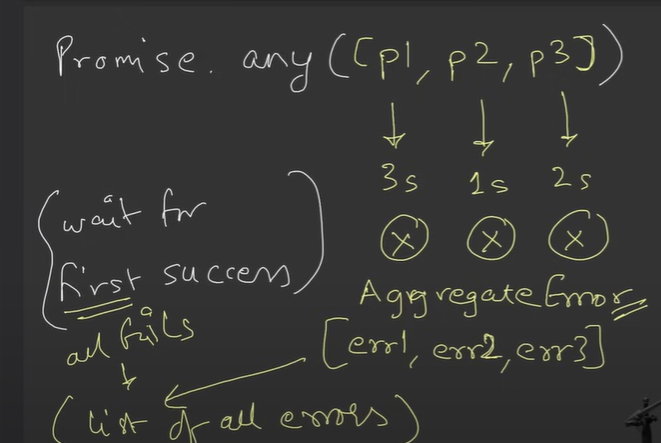 Promise. any([p1, p2, p3])
3s 1s 2s
x x x
(wait for
first success)
AggregateError
all fails
[err1, err2, err3]
(list of all errors)